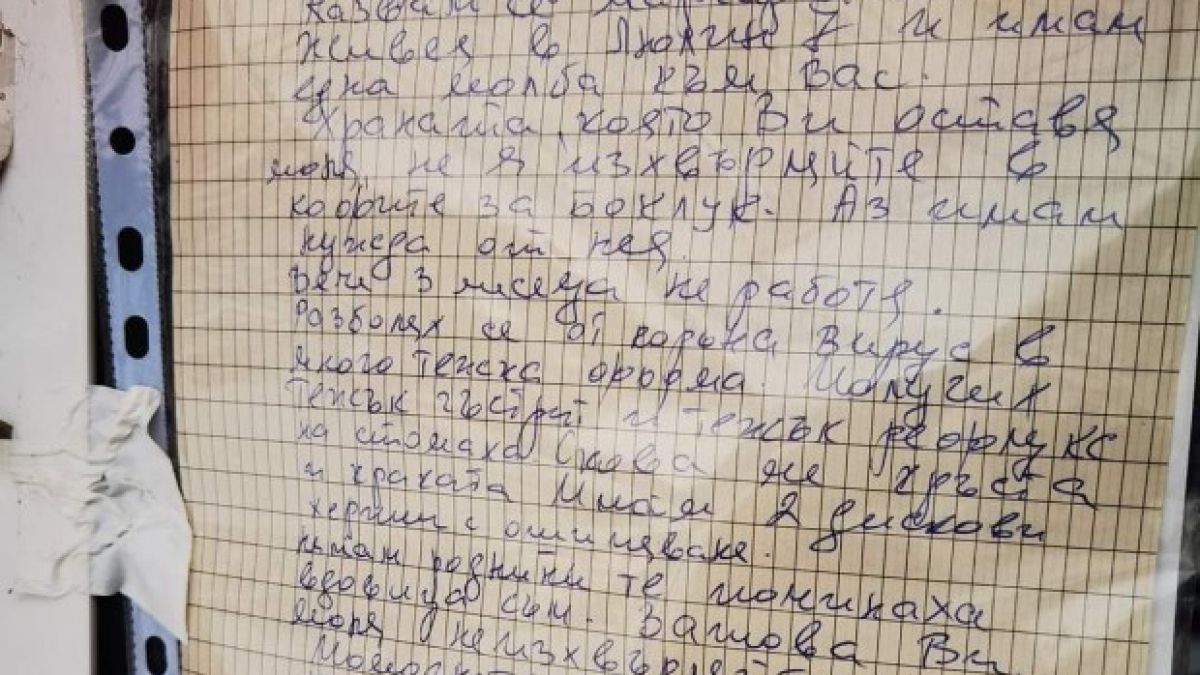 казвам се
живея в Люлин 7 и имам
една молба към Вас.
Храната, която Ви оставя
моля, не я изхвърляйте в
кофите за боклук. Аз имам
нужда от нея.
Вече 3 месеца не работя.
Разболях се от корона вирус в
много тежка форма. Получих
тежък гъстрит и тежък рефлукс
на стомаха Схова же хръста
и краката Имам 2 дискови
хернии с отицяване.
Нямам роднини те починаха
вдовица съм. Затова Ви
моля неизхвърляйте